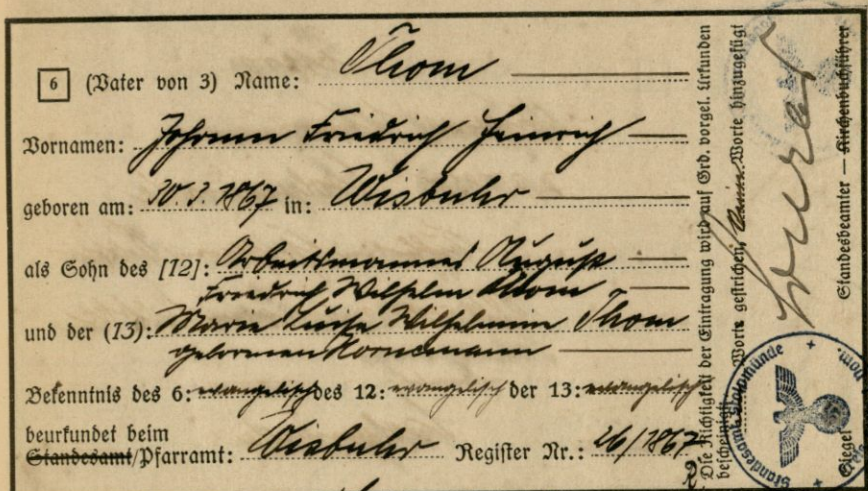 6 (Vater von 3) Name: Thom
Vornamen: Johann Friedrich Heinrich
geboren am: 30.3.1867 in: Wisbuhr
als Sohn des [12]: Arbeitsmannes August
Friedrich Wilhelm Thom
und der (13): Marie Luise Wilhelmine Thom
geborenen Hornemann
Bekenntnis des 6: evangelisch des 12: evangelisch der 13: evangelisch
beurkundet beim
Standesamt/Pfarramt: Wisbuhr Register Nr.: 26/1867
Die Richtigkeit der Eintragung wird auf Grd. vorgel. Urkunden
bescheinigt. Worte gestrichen, Worte hinzugefügt
Standesbeamter — Kirchenbuchführer
Siegel
Standesamt Stolpmünde Pom.